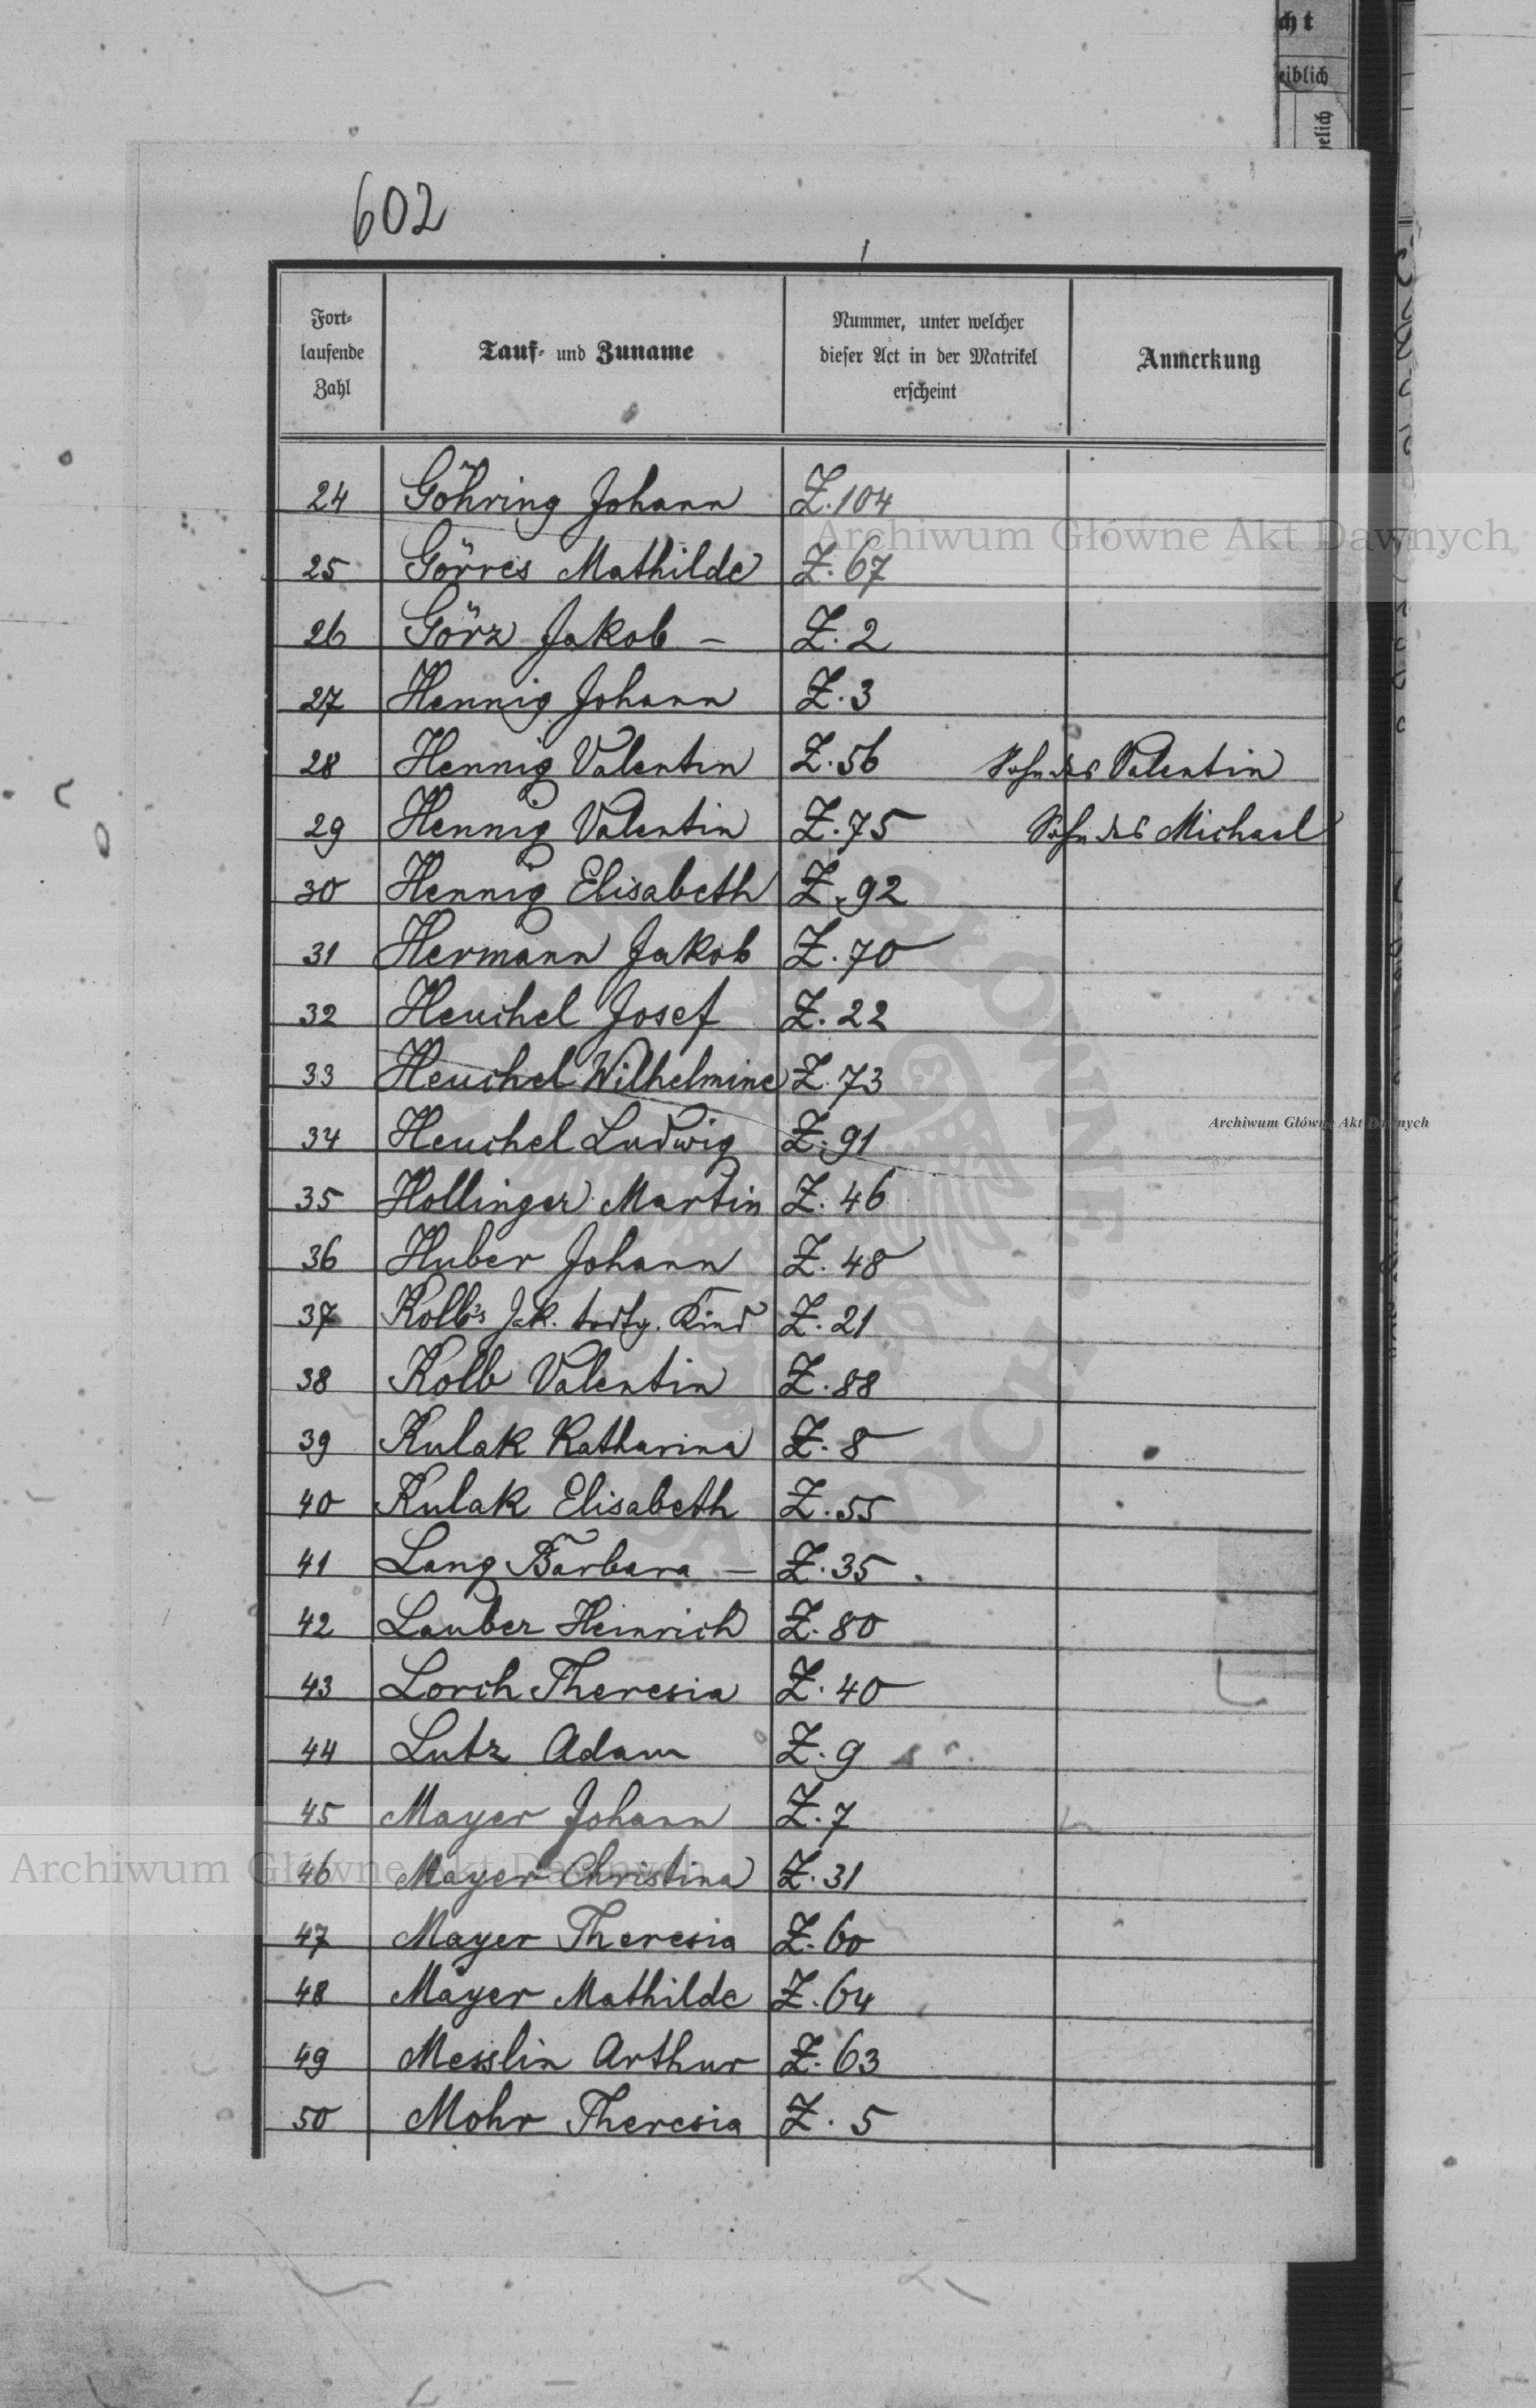 cht
eiblich
elich
602
Fort-
laufende
Zahl
Tauf- und Zuname
Nummer, unter welcher
dieser Act in der Matrikel
erscheint
Anmerkung
24 Göhring Johann Z. 104
25 Görres Mathilde Z. 67
26 Görz Jakob – Z. 2
27 Hennig Johann Z. 3
28 Hennig Valentin Z. 56 Sohn des Valentin
29 Hennig Valentin Z. 75 Sohn des Michael
30 Hennig Elisabeth Z. 92
31 Hermann Jakob Z. 70
32 Heuchel Josef Z. 22
33 Heuchel Wilhelmine Z. 73
34 Heuchel Ludwig Z. 91
35 Hollinger Martin Z. 46
36 Huber Johann Z. 48
37 Kolb's Jak. todtg. Kind Z. 21
38 Kolb Valentin Z. 88
39 Kulak Katharina Z. 8
40 Kulak Elisabeth Z. 55
41 Lang Barbara – Z. 35.
42 Lauber Heinrich Z. 80
43 Lorch Theresia Z. 40
44 Lutz Adam Z. 9
45 Mayer Johann Z. 7
46 Mayer Christina Z. 31
47 Mayer Theresia Z. 60
48 Mayer Mathilde Z. 64
49 Messlin Arthur Z. 63
50 Mohr Theresia Z. 5
Archiwum Główne Akt Dawnych
Archiwum Główne Akt Dawnych
Archiwum Główne Akt Dawnych